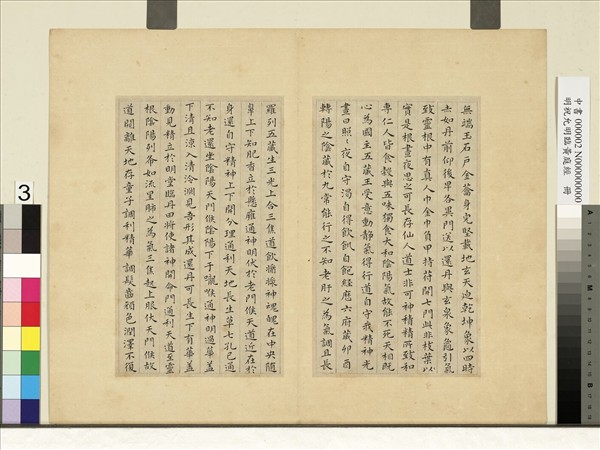 無端玉石戶金籥身完堅載地玄天迫乾坤象以四時
赤如丹前仰後卑各異門送以還丹與玄泉象龜引氣
致靈根中有真人巾金巾負甲持符開七門此非枝葉以
實是根晝夜思之可長存仙人道士非可神積精所致和
專仁人皆食穀與五味獨食太和陰陽氣故能不死天相既
心為國主五藏王受意動靜氣得行道自守我精神光
晝日照〻夜自守渴自得飲飢自飽經歷六府藏卯酉
轉陽之陰藏於九常能行之不知老肝之為氣調且長
羅列五藏生三光上合三焦道飲漿神魂魄在中央隨
鼻上下知肥香立於懸雍通神明伏於老門候天道近在於
身還自守精神上下開分理通利天地長生草七孔已通
不知老還坐陰陽天門候陰陽下于嚨喉通神明過華蓋
下清且涼入清泠淵見吾形其成還丹可長生下有華蓋
動見精立於明堂臨丹田將使諸神開命門通利天道至靈
根陰陽列布如流星肺之為氣三焦起上服伏天門候故
道闚離天地存童子調利精華調髮齒顏色潤澤不復
中書 000002 N000000000
明祝允明臨黃庭經 冊
3